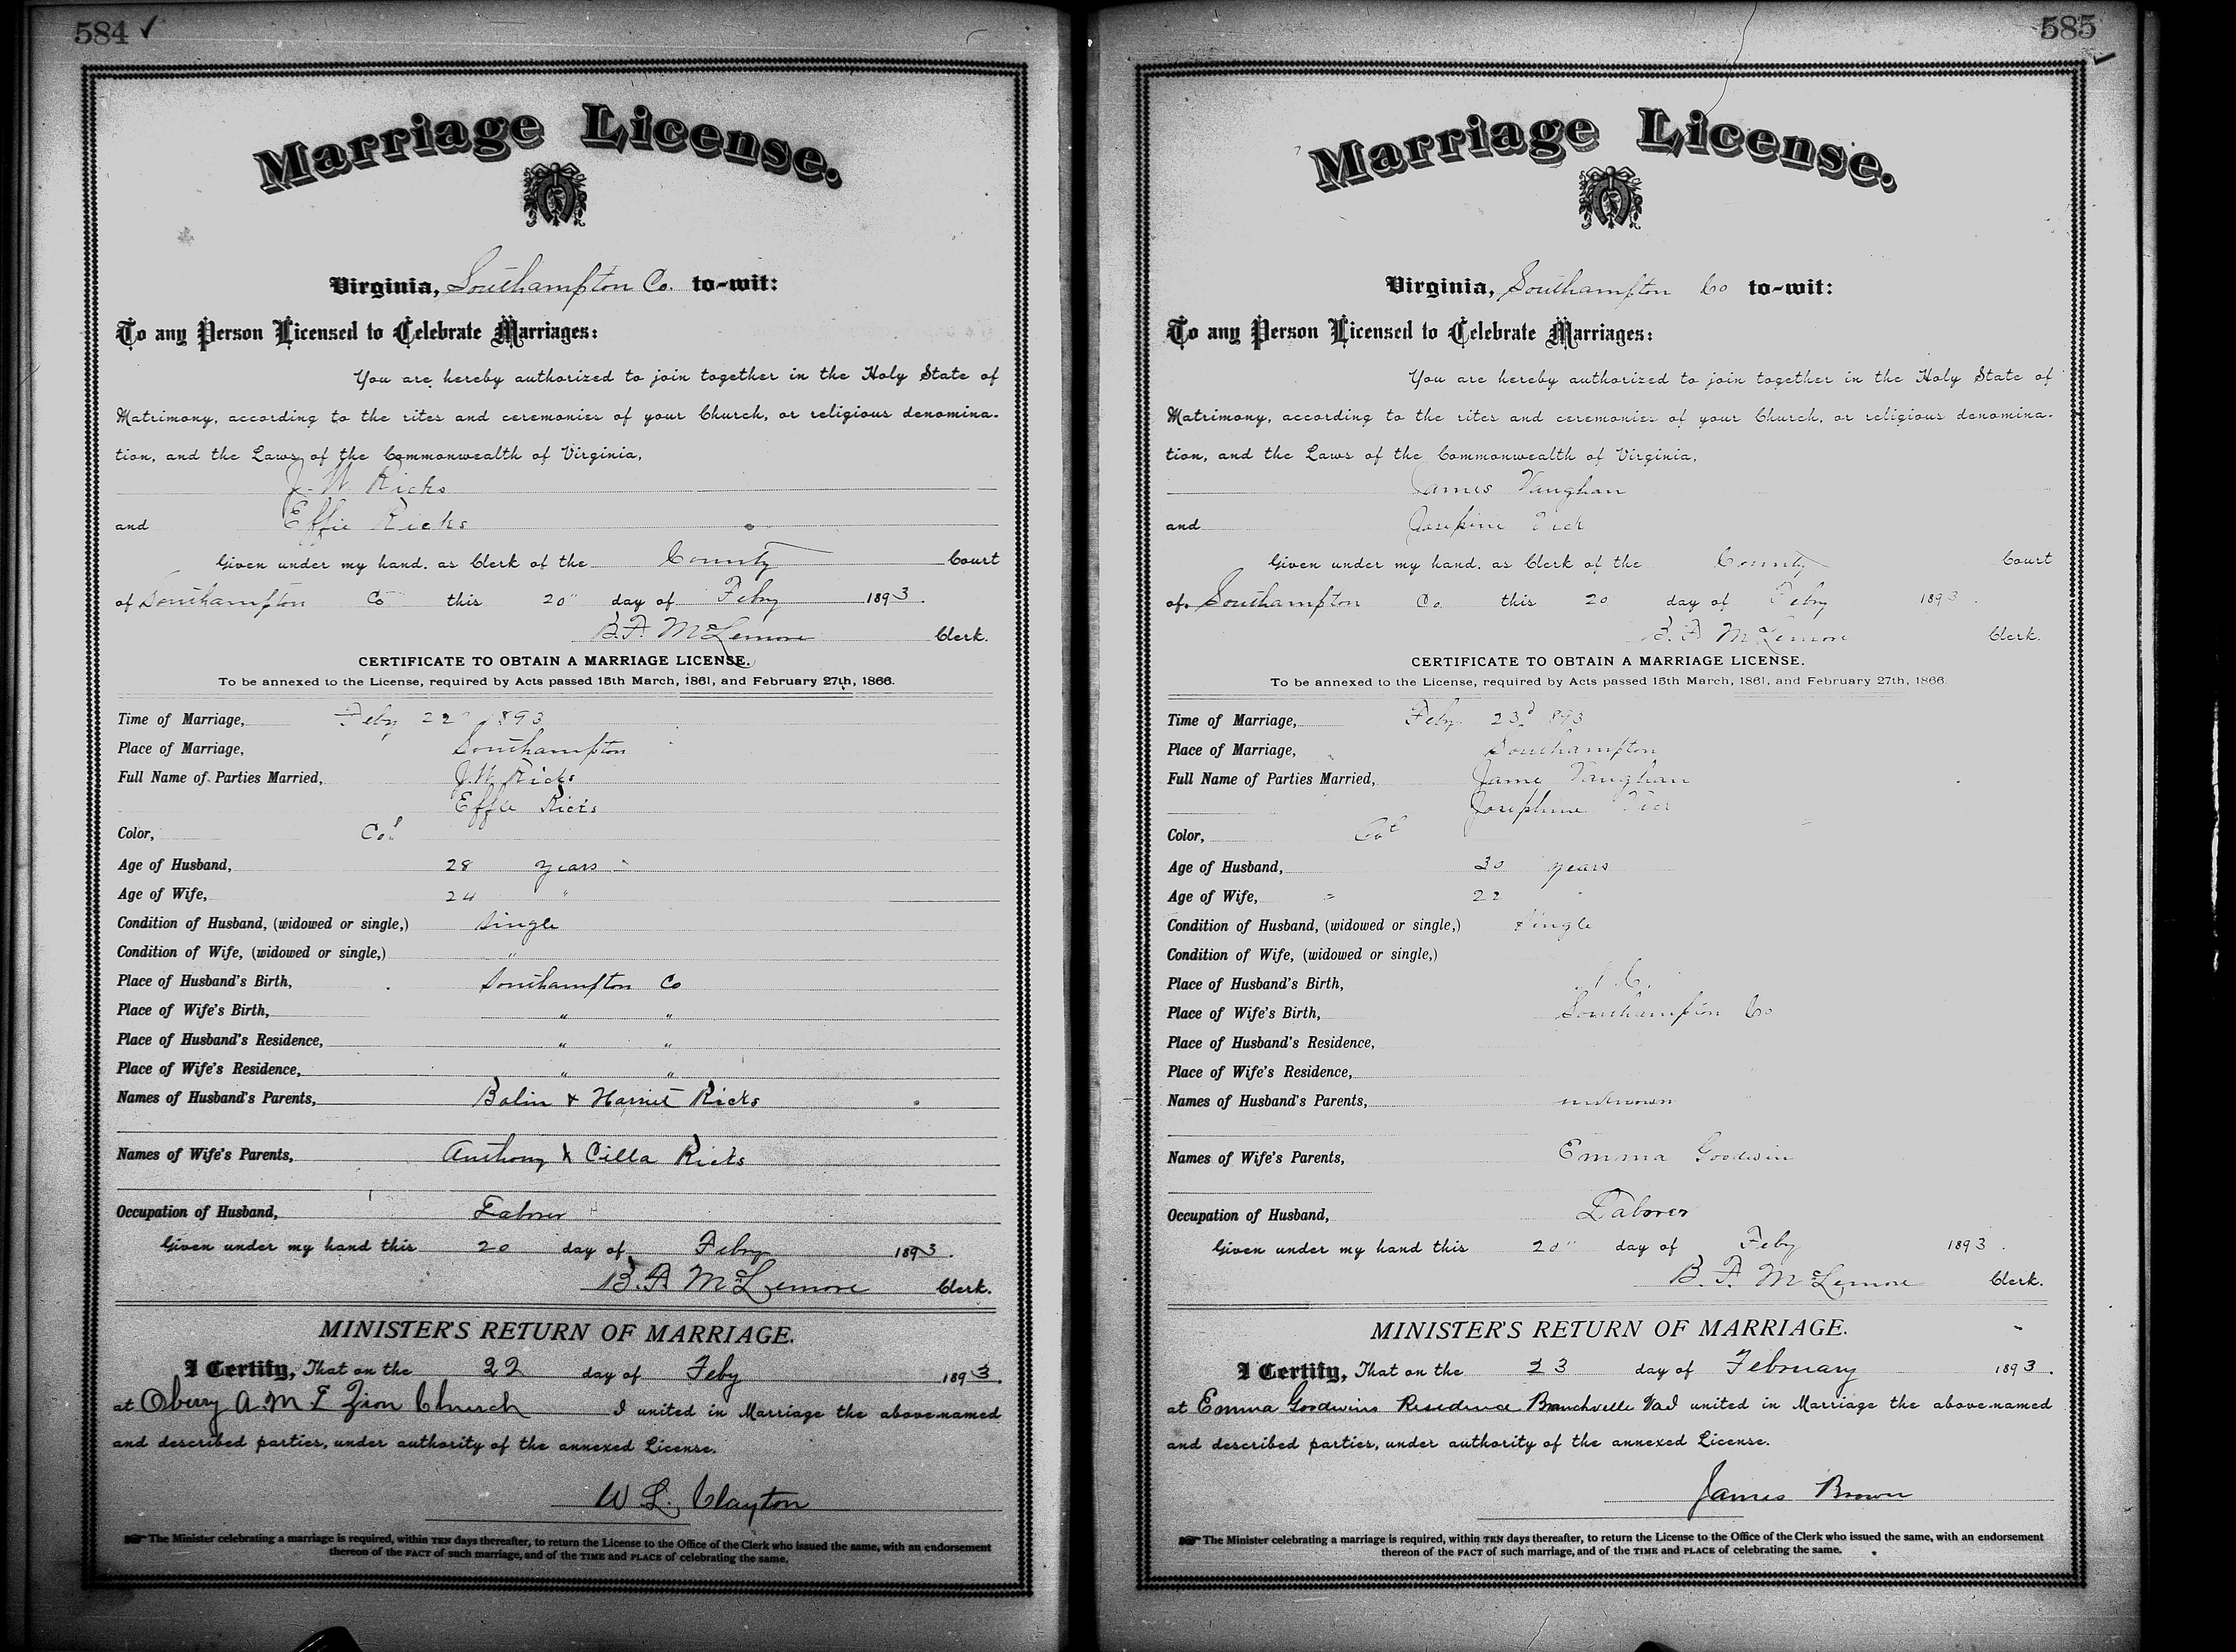 584 ✓
Marriage License.
Virginia, Southampton Co. to-wit:
To any Person Licensed to Celebrate Marriages:
You are hereby authorized to join together in the Holy State of
Matrimony, according to the rites and ceremonies of your Church, or religious denomina-
tion, and the Laws of the Commonwealth of Virginia,
J. W. Ricks
and Effie Ricks
Given under my hand, as Clerk of the County Court
of Southampton Co this 20" day of Feby 1893.
B. F. McLemore Clerk.
CERTIFICATE TO OBTAIN A MARRIAGE LICENSE.
To be annexed to the License, required by Acts passed 15th March, 1861, and February 27th, 1866.
Time of Marriage, Feby 22d 1893
Place of Marriage, Southampton
Full Name of Parties Married, J. W. Ricks
Effie Ricks
Color, Col
Age of Husband, 28 years
Age of Wife, 24 "
Condition of Husband, (widowed or single,) single
Condition of Wife, (widowed or single,) "
Place of Husband's Birth, Southampton Co
Place of Wife's Birth, " "
Place of Husband's Residence, " "
Place of Wife's Residence, " "
Names of Husband's Parents, Bolin & Harriet Ricks
Names of Wife's Parents, Anthony & Cilla Ricks
Occupation of Husband, Laborer
Given under my hand this 20 day of Feby 1893.
B. F. McLemore Clerk.
MINISTER'S RETURN OF MARRIAGE.
I Certify, That on the 22 day of Feby 1893.
at Oberry A. M. E Zion Church I united in Marriage the above-named
and described parties, under authority of the annexed License.
W L. Clayton
The Minister celebrating a marriage is required, within TEN days thereafter, to return the License to the Office of the Clerk who issued the same, with an endorsement
thereof of the FACT of such marriage, and of the TIME and PLACE of celebrating the same.
585 ✓
Marriage License.
Virginia, Southampton Co to-wit:
To any Person Licensed to Celebrate Marriages:
You are hereby authorized to join together in the Holy State of
Matrimony, according to the rites and ceremonies of your Church, or religious denomina-
tion, and the Laws of the Commonwealth of Virginia,
James Vaughan
and Josephine Vick
Given under my hand, as Clerk of the County Court
of Southampton Co. this 20 day of Feby 1893.
B. F. McLemore Clerk.
CERTIFICATE TO OBTAIN A MARRIAGE LICENSE.
To be annexed to the License, required by Acts passed 15th March, 1861, and February 27th, 1866.
Time of Marriage, Feby 23d 893
Place of Marriage, Southampton
Full Name of Parties Married, Jame Vaughan
Josephine Vick
Color, Col
Age of Husband, 30 years
Age of Wife, 22
Condition of Husband, (widowed or single,) single
Condition of Wife, (widowed or single,)
Place of Husband's Birth,
Place of Wife's Birth, Southampton Co
Place of Husband's Residence,
Place of Wife's Residence,
Names of Husband's Parents, unknown
Names of Wife's Parents, Emma Goodwin
Occupation of Husband, Laborer
Given under my hand this 20" day of Feby 1893.
B. F. McLemore Clerk.
MINISTER'S RETURN OF MARRIAGE.
I Certify, That on the 23 day of February 1893.
at Emma Goodwins Residence Branchville Va I united in Marriage the above-named
and described parties, under authority of the annexed License.
James Brown
The Minister celebrating a marriage is required, within TEN days thereafter, to return the License to the Office of the Clerk who issued the same, with an endorsement
thereon of the FACT of such marriage, and of the TIME and PLACE of celebrating the same.